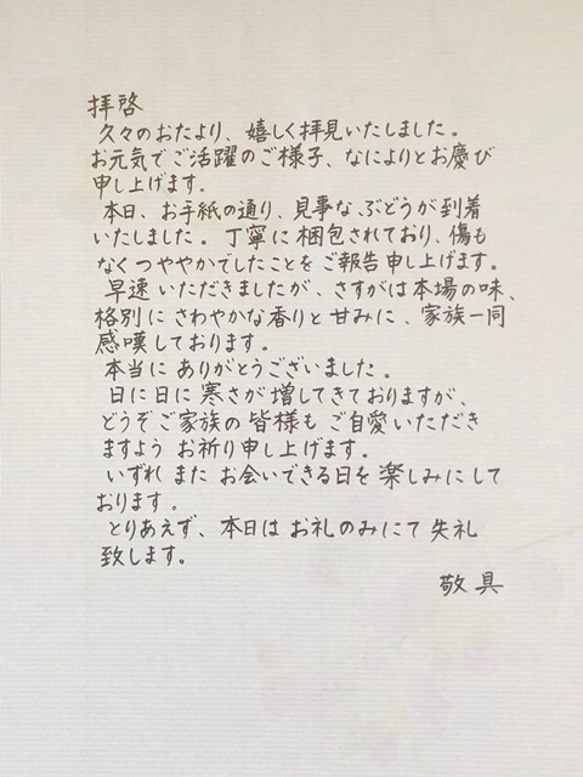 拝啓
久々のおたより、嬉しく拝見いたしました。
お元気でご活躍のご様子、なによりとお慶び
申し上げます。
本日、お手紙の通り、見事なぶどうが到着
いたしました。丁寧に梱包されており、傷も
なくつややかでしたことをご報告申し上げます。
早速いただきましたが、さすがは本場の味、
格別にさわやかな香りと甘みに、家族一同
感嘆しております。
本当にありがとうございました。
日に日に寒さが増してきておりますが、
どうぞご家族の皆様もご自愛いただき
ますようお祈り申し上げます。
いずれまたお会いできる日を楽しみにして
おります。
とりあえず、本日はお礼のみにて失礼
致します。
敬具